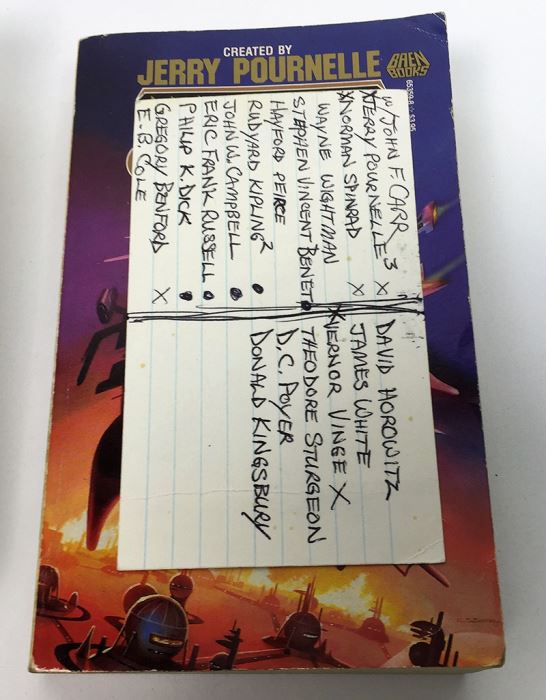 CREATED BY
JERRY POURNELLE
BAEN
BOOKS
65359-8 $3.95
W/ JOHN F. CARR
X JERRY POURNELLE³ X
X NORMAN SPINRAD X
WAYNE WIGHTMAN
STEPHEN VINCENT BENET •
HAYFORD PEIRCE
RUDYARD KIPLING² •
JOHN W. CAMPBELL •
ERIC FRANK RUSSELL •
PHILIP K. DICK •
GREGORY BENFORD X
E. B. COLE
DAVID HOROWITZ
JAMES WHITE
X VERNOR VINGE X
THEODORE STURGEON
D.C. POYER
DONALD KINGSBURY